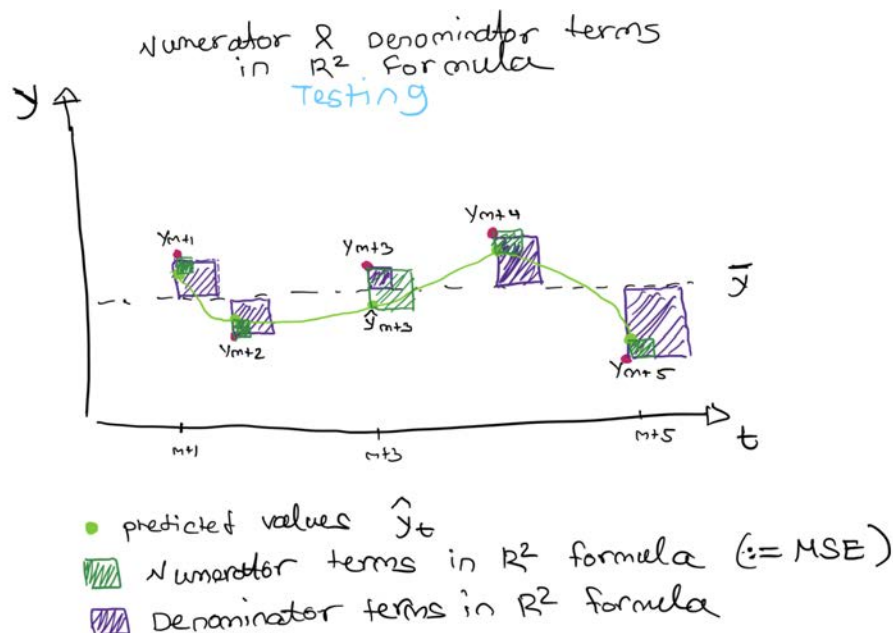 Numerator & Denominator terms
in R² formula
Testing
y
ym+1
ym+2
ym+3
ŷm+3
ym+4
ȳ
ym+5
m+1
m+3
m+5
t
predicted values ŷt
Numerator terms in R² formula (:= MSE)
Denominator terms in R² formula